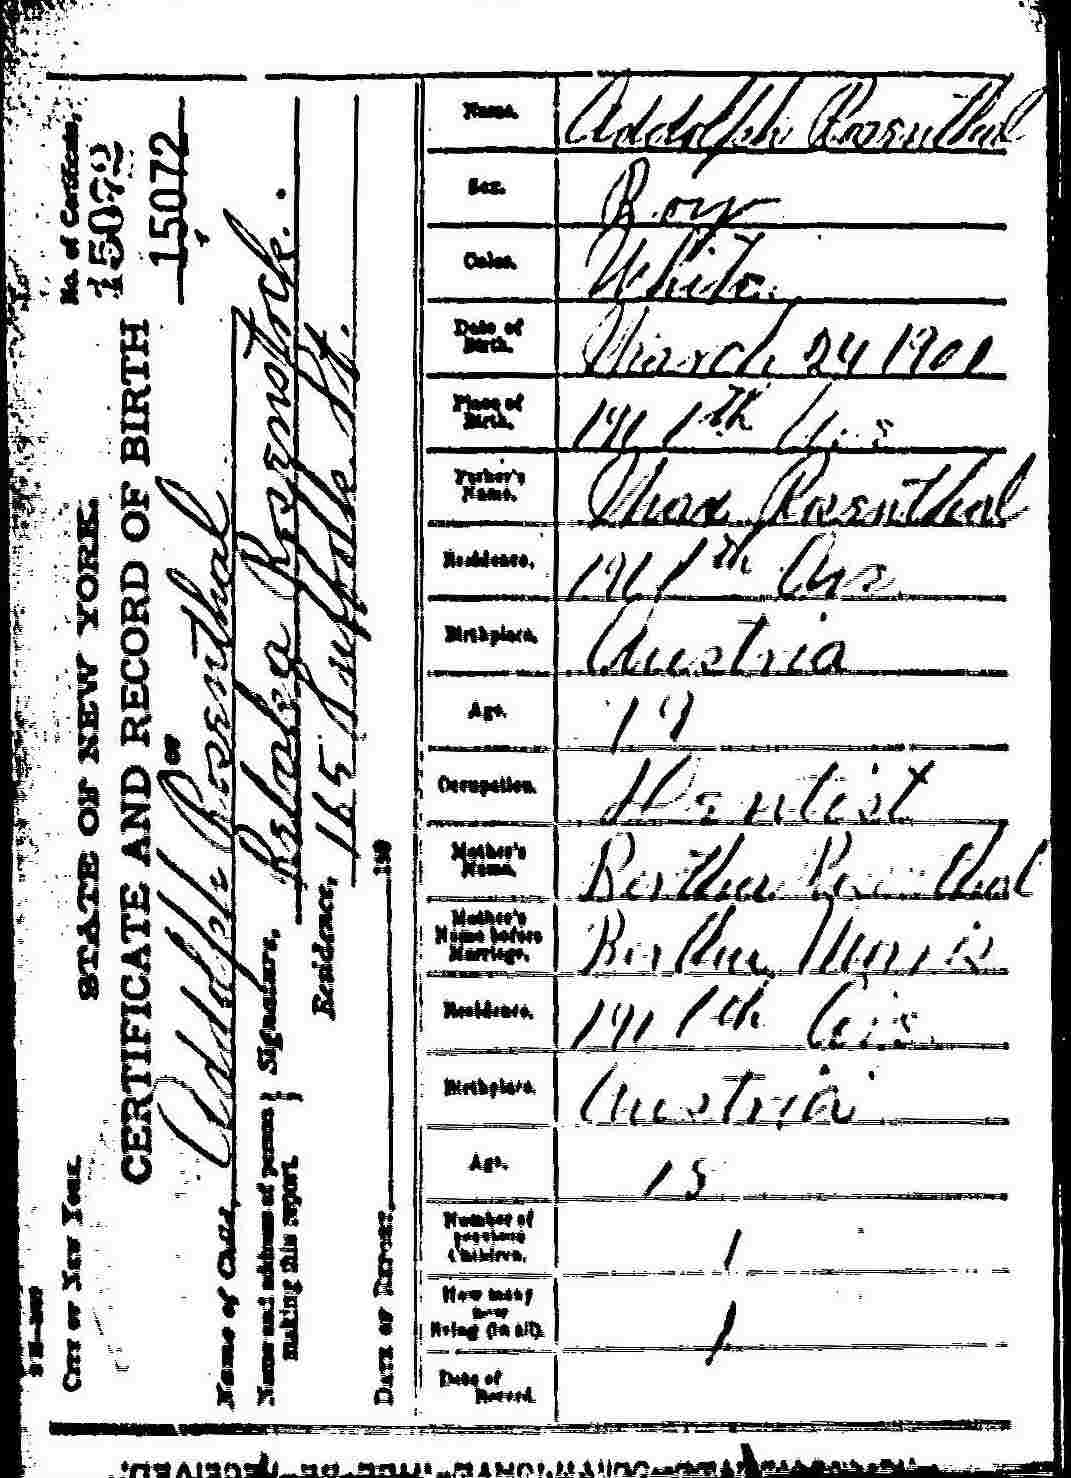 No. of Certificate,
15072
15072
CITY OF NEW YORK.
STATE OF NEW YORK.
CERTIFICATE AND RECORD OF BIRTH
OF
Name of Child, Addolph Rosenthal
Name and address of person making this report. Signature, Rebeka Rosenstock.
Residence, 165 Suffolk St.
DATE OF REPORT, 190
Name. Addolph Rosenthal
Sex. Boy
Color. White.
Date of Birth. March 24 1901
Place of Birth. 191 7th Ave
Father's Name. Max Rosenthal
Residence. 191 7th Ave
Birthplace. Austria
Age. 19
Occupation. Dentist
Mother's Name. Bertha Rosenthal
Mother's Name before Marriage. Bertha Morris
Residence. 191 7th Ave.
Birthplace. Austria
Age. 18
Number of previous Children. 1
How many now living (in all). 1
Date of Record.